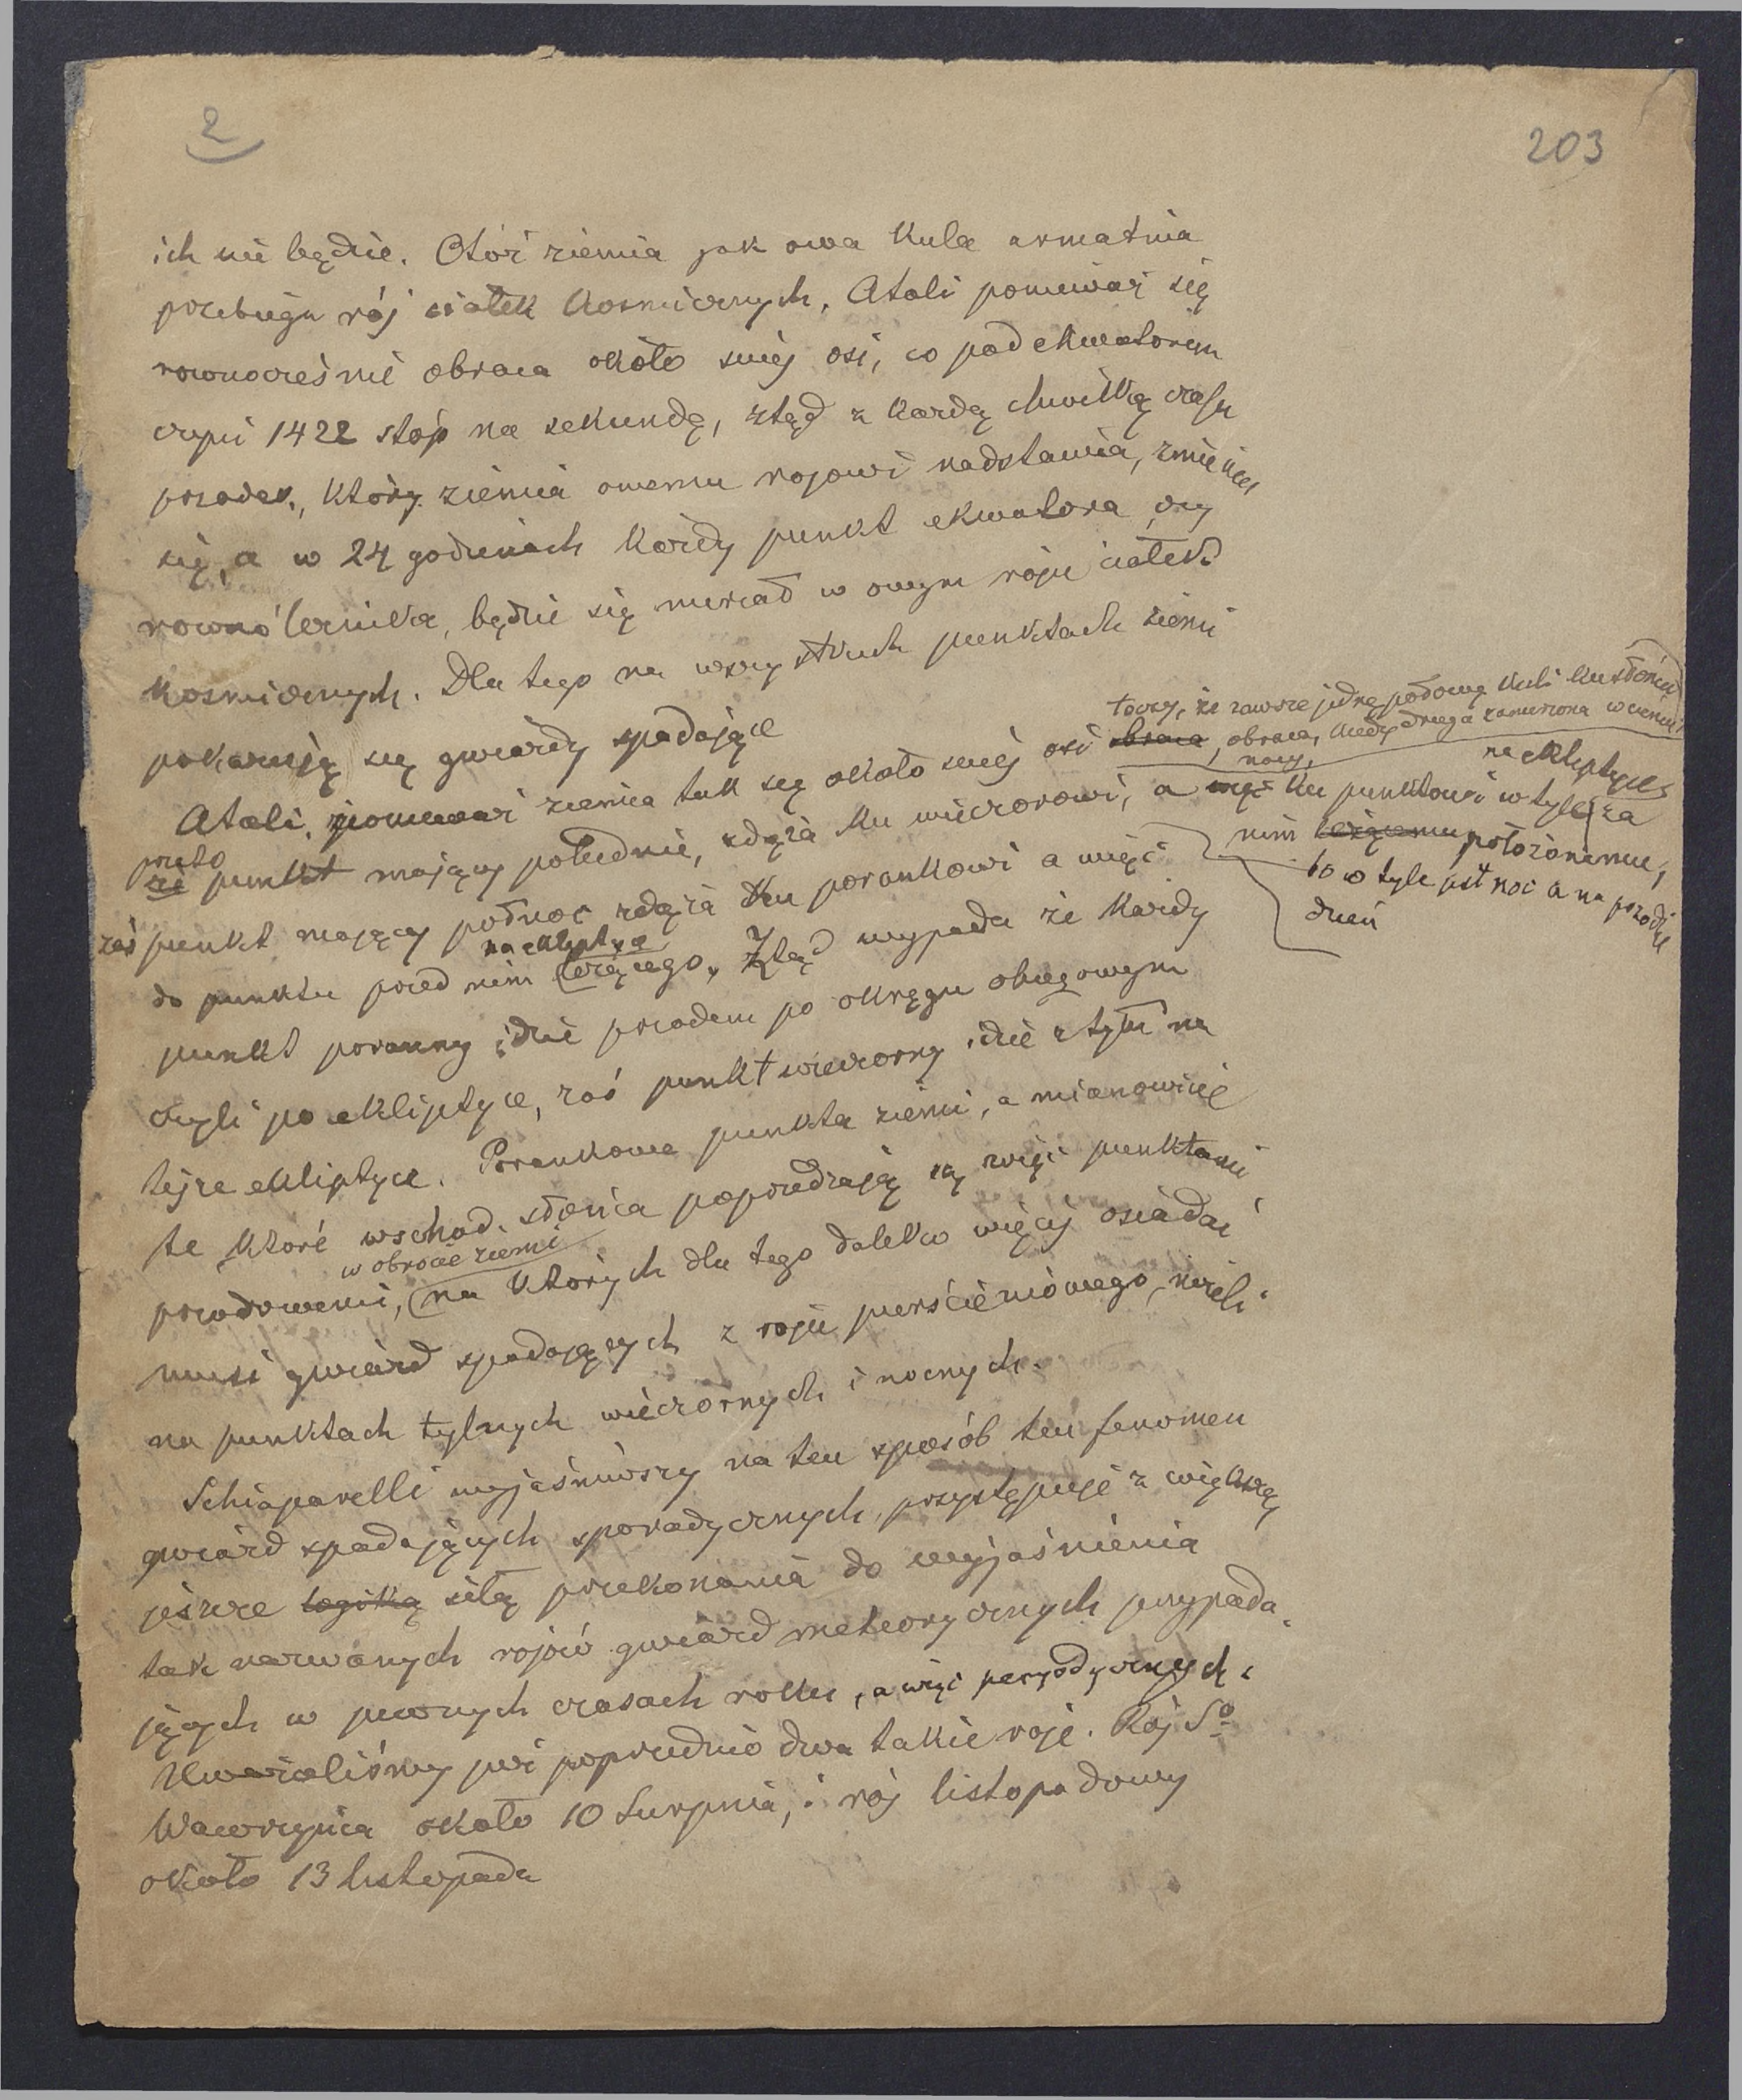 2
203
ich nie będzie. Otóż ziemia jak owa kula armatnia
przebiega rój ciałek kosmicznych. Atoli ponieważ się
rownocześnie obraca około swéj osi, co pod ekwatorem
czyni 1422 stóp na sekundę, ztąd z każdą chwilką czasu
przodek, który ziemia owemu rojowi nadstawia, zmienia
się, a w 24 godzinach każdy punkt ekwatora, czy
rownoleżnika, będzie się nurzał w owym roju ciałek
kosmicznych. Dla tego na wszystkich punktach ziemi
pokazują się gwiazdy spadające
toczy, że zawsze jedną połową kuli ku słońcu
obraca, kiedy druga zanurzona w cieniu
Atoli, ponieważ ziemia tak się około swéj osi obraca
nocy, na ekliptyce
przeto że punkt mający południe, zdąża ku wieczorowi, a więc ku punktowi w tyle za
nim leżącemu położonemu,
bo w tyle jest noc a na przodzie
dzień
zaś punkt mający północ zdąża ku porankowi a więc
na ekliptyce
do punktu przed nim leżącego. Ztąd wypada że każdy
punkt poranny idzie przodem po okręgu obiegowym
czyli po ekliptyce, zaś punkt wieczorny idzie z tyłu na
tejże ekliptyce. Porankowe punkta ziemi, a mianowicie
te które wschod. słońca poprzedzają są więc punktami
w obrocie ziemi
przodowemi, na których dla tego daleko więcéj osiadać
musi gwiazd spadających z roju pierścieniowego, niżeli
na punktach tylnych wieczornych i nocnych.
Schiaparelli wyjaśniwszy na ten sposób ten fenomen
gwiazd spadających sporadycznych, przystępuje z większą
jeszcze logiką siłą przekonania do wyjaśnienia
tak nazwanych rojów gwiazd meteorycznych przypada-
jących w pewnych czasach roku, a więc peryodycznych.
Uważaliśmy już poprzednio dwa takie roje. Rój Sº
Wawrzyńca około 10 Sierpnia, i rój listopadowy
około 13 listopada